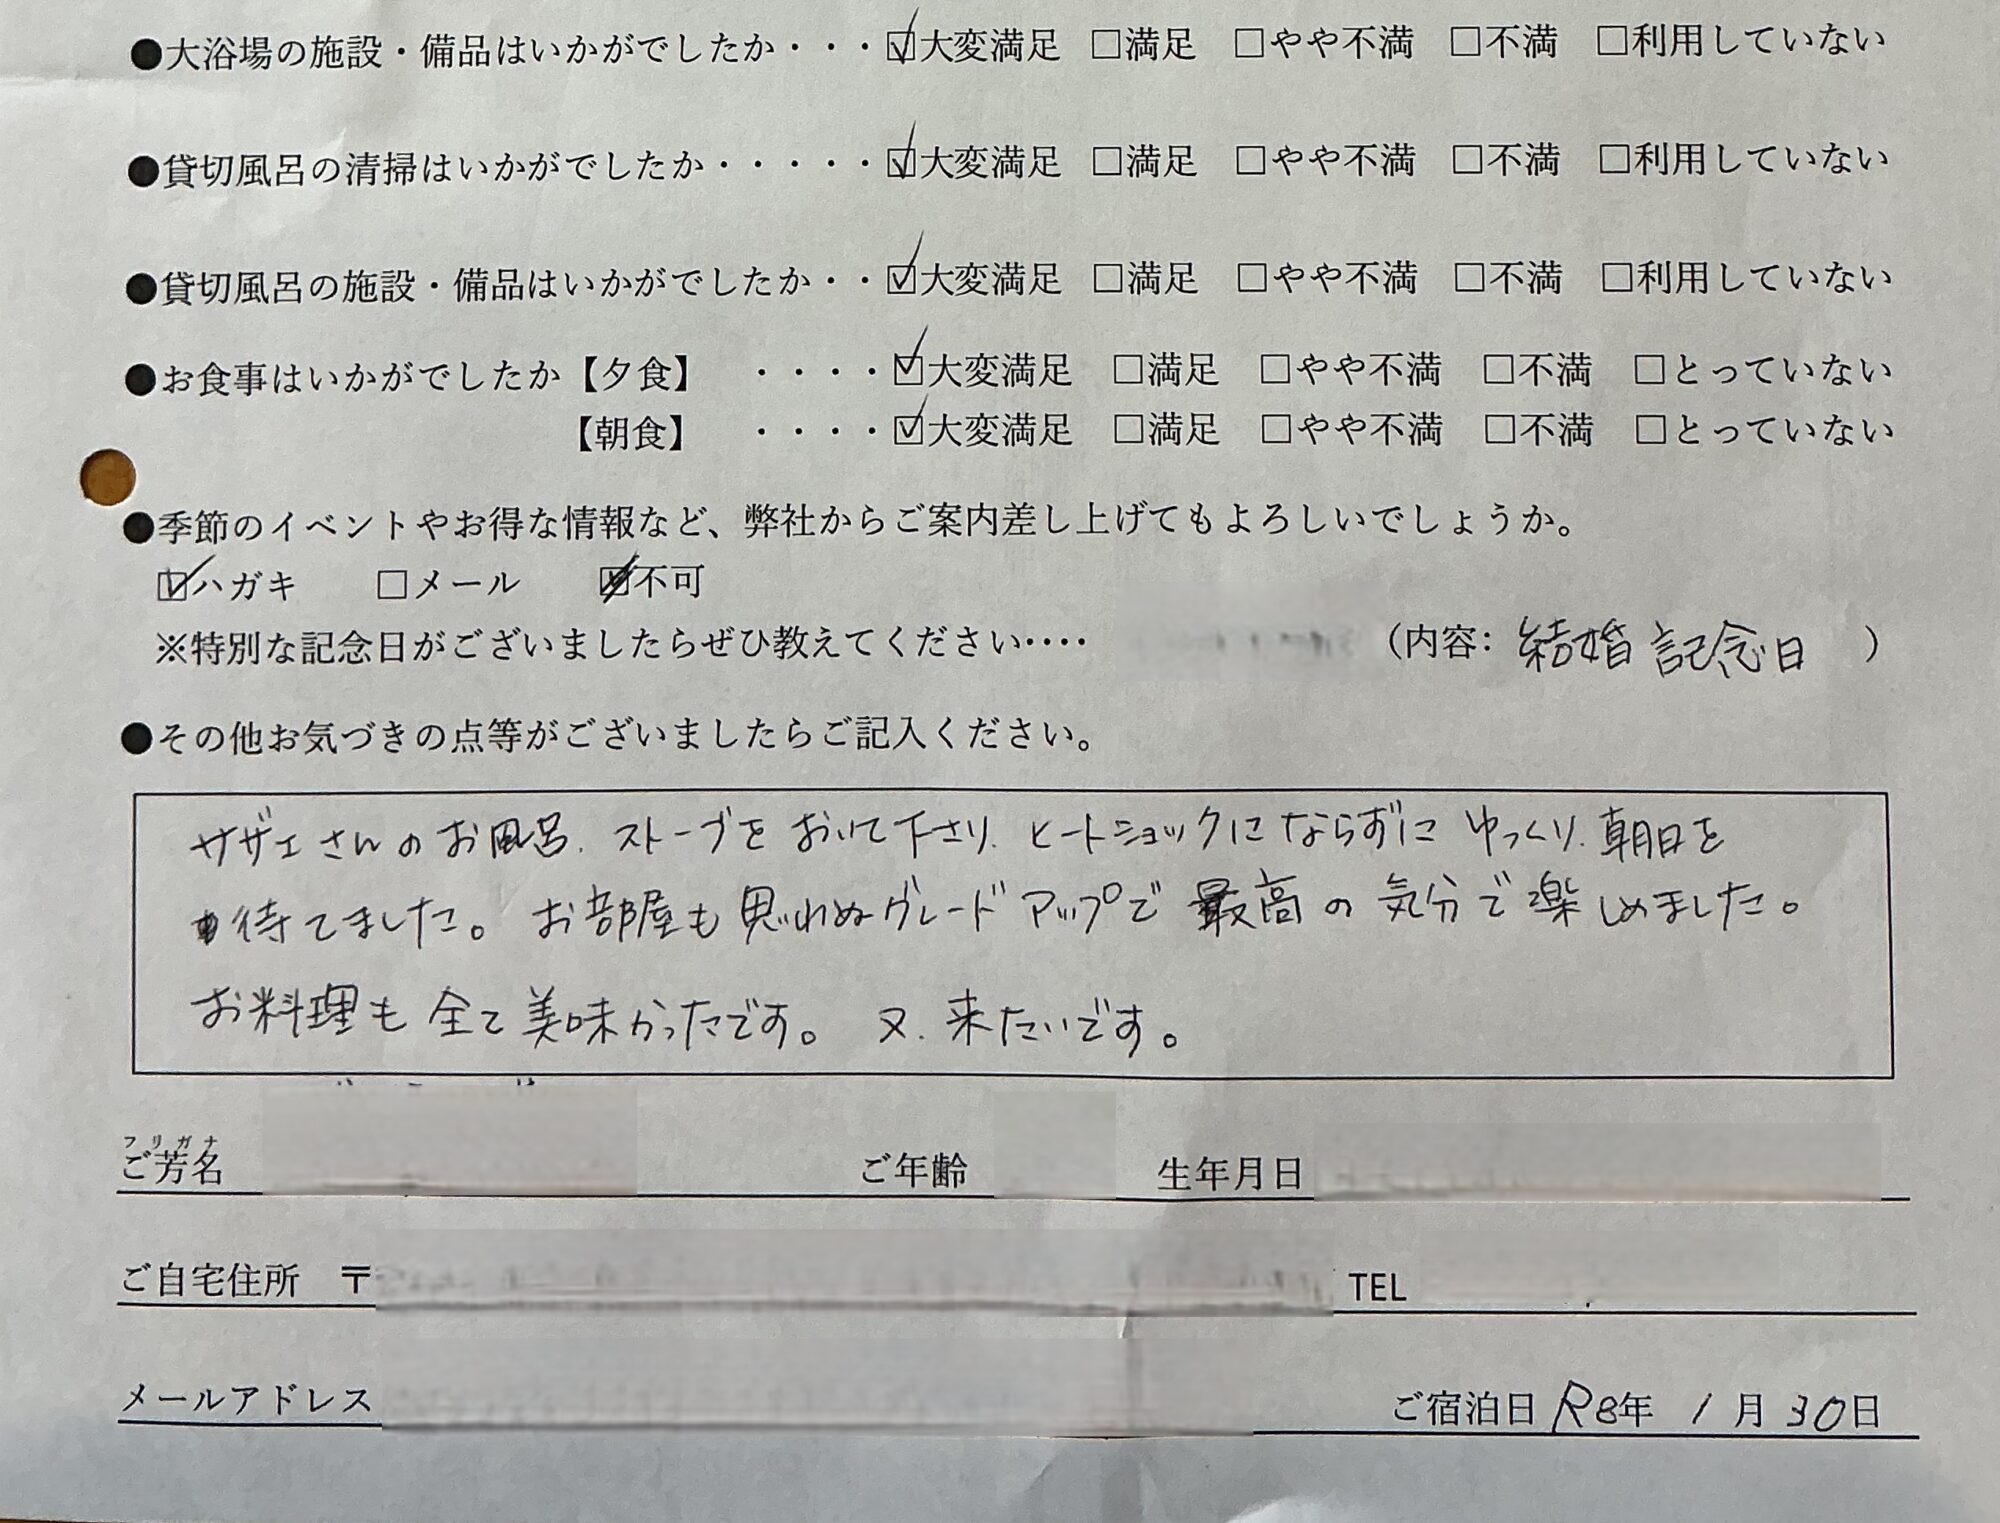 ●大浴場の施設・備品はいかがでしたか・・・☑大変満足 □満足 □やや不満 □不満 □利用していない
●貸切風呂の清掃はいかがでしたか・・・・・☑大変満足 □満足 □やや不満 □不満 □利用していない
●貸切風呂の施設・備品はいかがでしたか・・☑大変満足 □満足 □やや不満 □不満 □利用していない
●お食事はいかがでしたか【夕食】 ・・・・☑大変満足 □満足 □やや不満 □不満 □とっていない
【朝食】 ・・・・☑大変満足 □満足 □やや不満 □不満 □とっていない
●季節のイベントやお得な情報など、弊社からご案内差し上げてもよろしいでしょうか。
☑ハガキ □メール ☑不可
※特別な記念日がございましたらぜひ教えてください‥‥ (内容: 結婚記念日 )
●その他お気づきの点等がございましたらご記入ください。
サザエさんのお風呂、ストーブをおいて下さり、ヒートショックにならずにゆっくり、朝日を
待てました。お部屋も思われぬグレードアップで最高の気分で楽しめました。
お料理も全て美味かったです。又、来たいです。
フリガナ
ご芳名 ご年齢 生年月日
ご自宅住所 〒 TEL
メールアドレス ご宿泊日 R8年 1月 30日